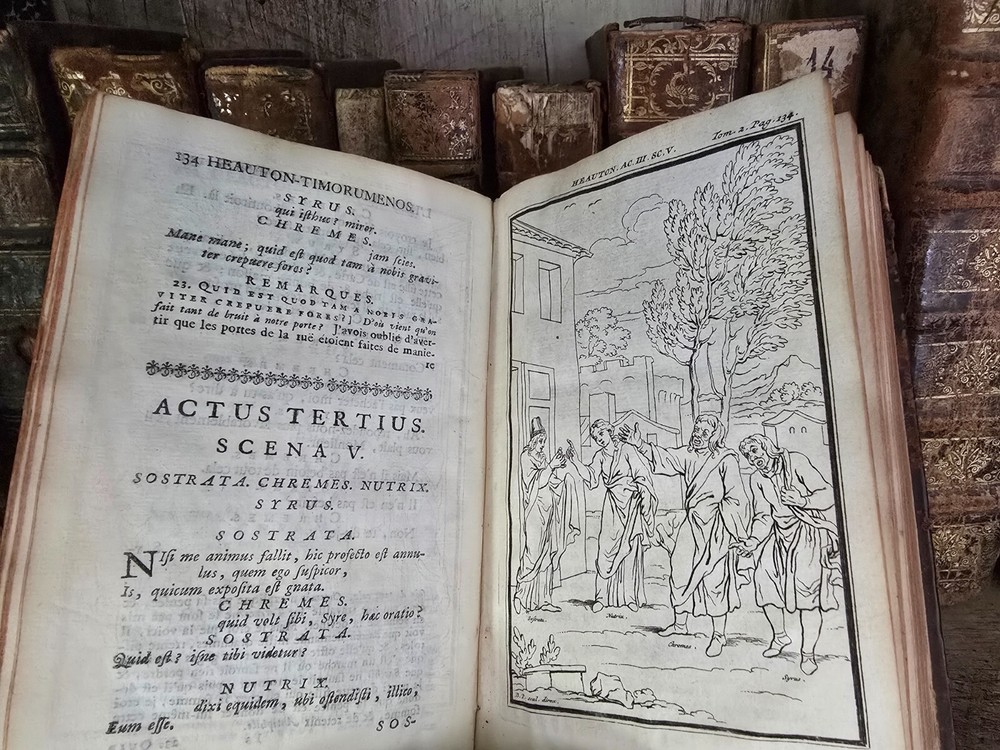 134 HEAUTON-TIMORUMENOS.
SYRUS.
qui isthuc? miror.
CHREMES.
jam scies.
Mane mane; quid est quod tam à nobis gravi-
ter crepuere fores?
REMARQUES.
23. QUID EST QUOD TAM A NOBIS GRA-
VITER CREPUERE FORES?] D'où vient qu'on
fait tant de bruit à notre porte? J'avois oublié d'aver-
tir que les portes de la ruë étoient faites de manie-
re
ACTUS TERTIUS.
SCENA V.
SOSTRATA. CHREMES. NUTRIX.
SYRUS.
SOSTRATA.
NIsi me animus fallit, hic profecto est annu-
lus, quem ego suspicor,
Is, quicum exposita est gnata.
CHREMES.
quid volt sibi, Syre, hæc oratio?
SOSTRATA.
Quid est? isne tibi videtur?
NUTRIX.
dixi equidem, ubi ostendisti, illico,
Eum esse.
SOS-
HEAUTON. AC. III. SC. V.
Tom. 2. Pag. 134.
Sostrata.
Nutrix.
Chremes.
Syrus.
14